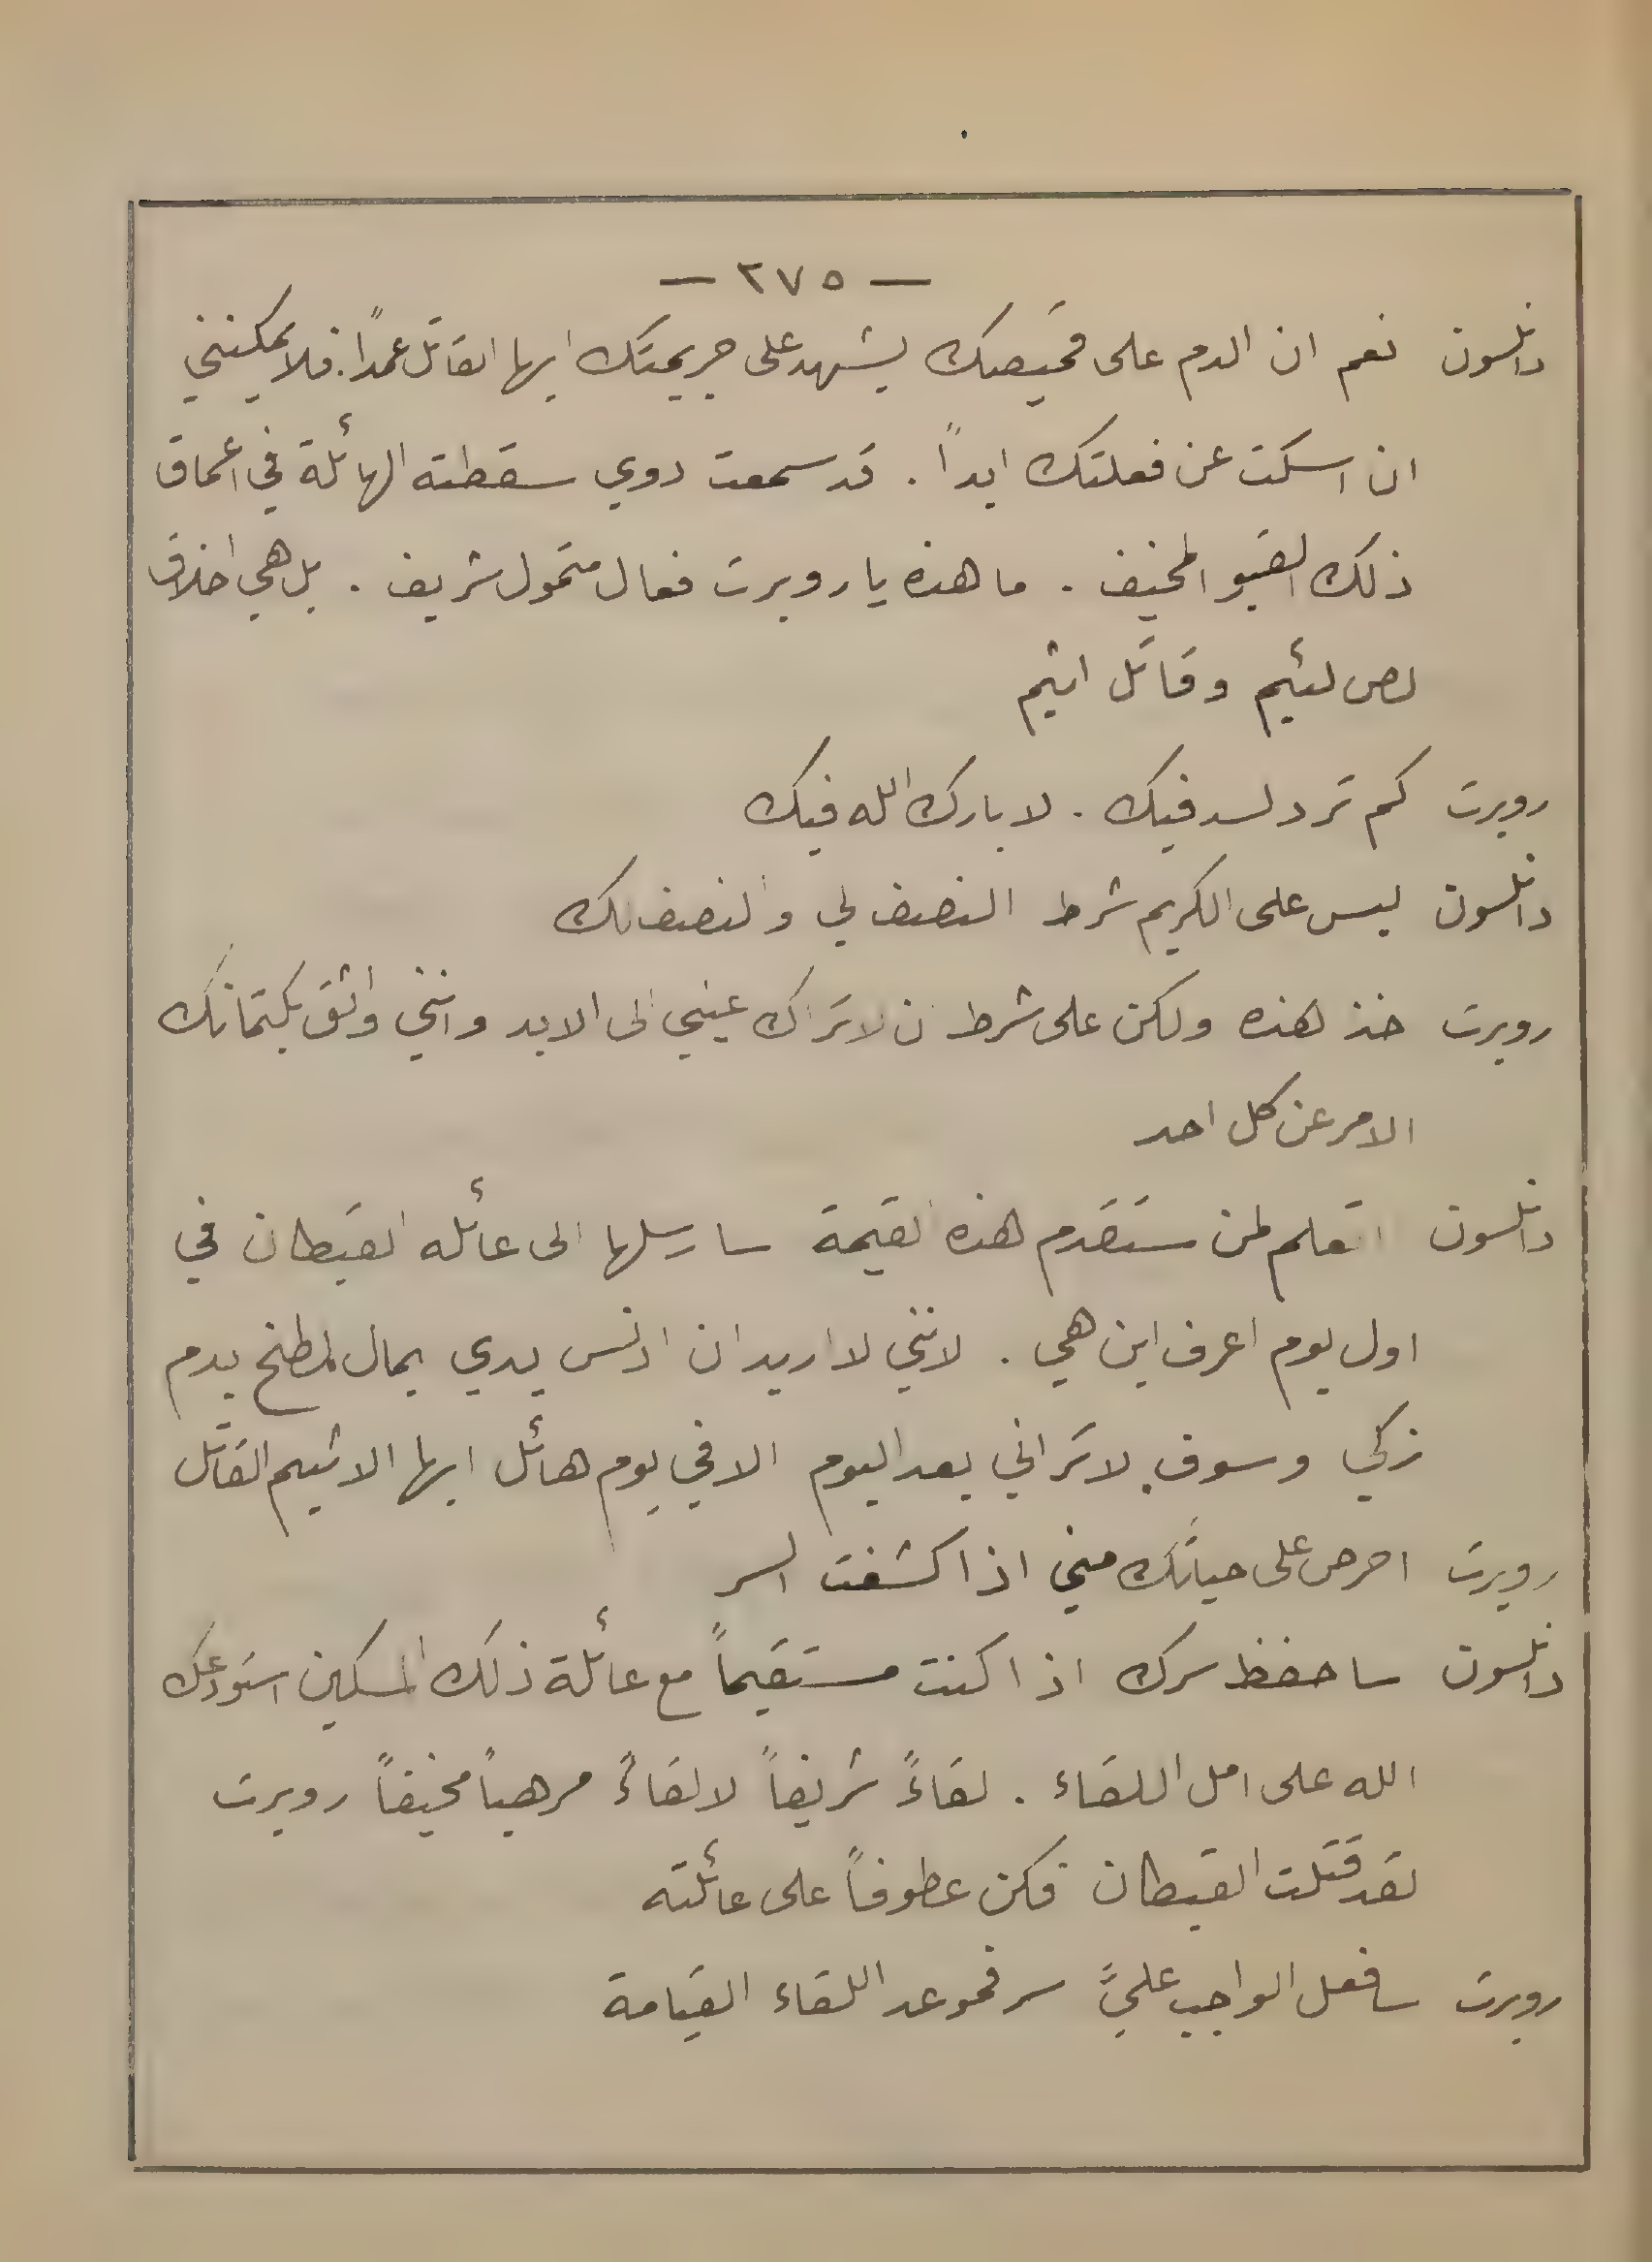 — ٢٧٥ —
دانلسون نعم ان الدم على قميصك يشهد على جريمتك ايها القاتل عمداً. فلا يمكنني
ان اسكت عن فعلتك ابداً . قد سمعت دوي سقطته الهائلة في اعماق
ذلك القبو المخيف . ما هذه يا روبرت فعال متمول شريف . بل هي اخلاق
لص لئيم وقاتل اثيم
روبرت كم تريد لسد فيك . لا بارك الله فيك
دانلسون ليس على الكريم شرط النصف لي والنصف لك
روبرت خذ هذه ولكن على شرط ان لا تراك عيني الى الابد وانني واثق بكتمانك
الامر عن كل احد
دانلسون اتعلم لمن ستقدم هذه القيمة سارسلها الى عائله القبطان في
اول يوم اعرف اين هي . لانني لا اريد ان ادنس يدي بمال ملطخ بدم
زكي وسوف لا تراني بعد اليوم الا في يوم هائل ايها الاثيم القاتل
روبرت احرص على حياتك مني اذا كشفت السر
دانلسون ساحفظ سرك اذا كنت مستقيماً مع عائلة ذلك المسكين استودعك
الله على امل اللقاء . لقاءً شريفاً لا لقاءً مرهباً مخيفاً روبرت
لقد قتلت القبطان فكن عطوفاً على عائلته
روبرت سافعل الواجب عليَّ سر فموعد اللقاء القيامة